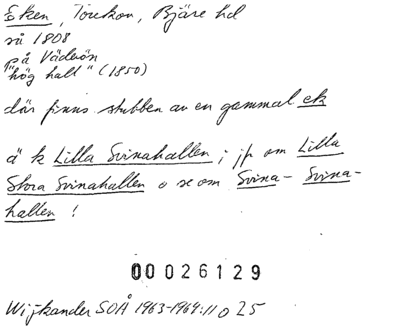 Eken, Torekov, Bjäre hd
sú 1808
på Väderön
"hög hall" (1850)
där finns stubben av en gammal ek
ä k Lilla Svinahallen; jfr om Lilla
Stora Svinahallen o se om Svina- Svina-
hallen!
00026129
Wijkander SOÅ 1963-1964:11 o 25